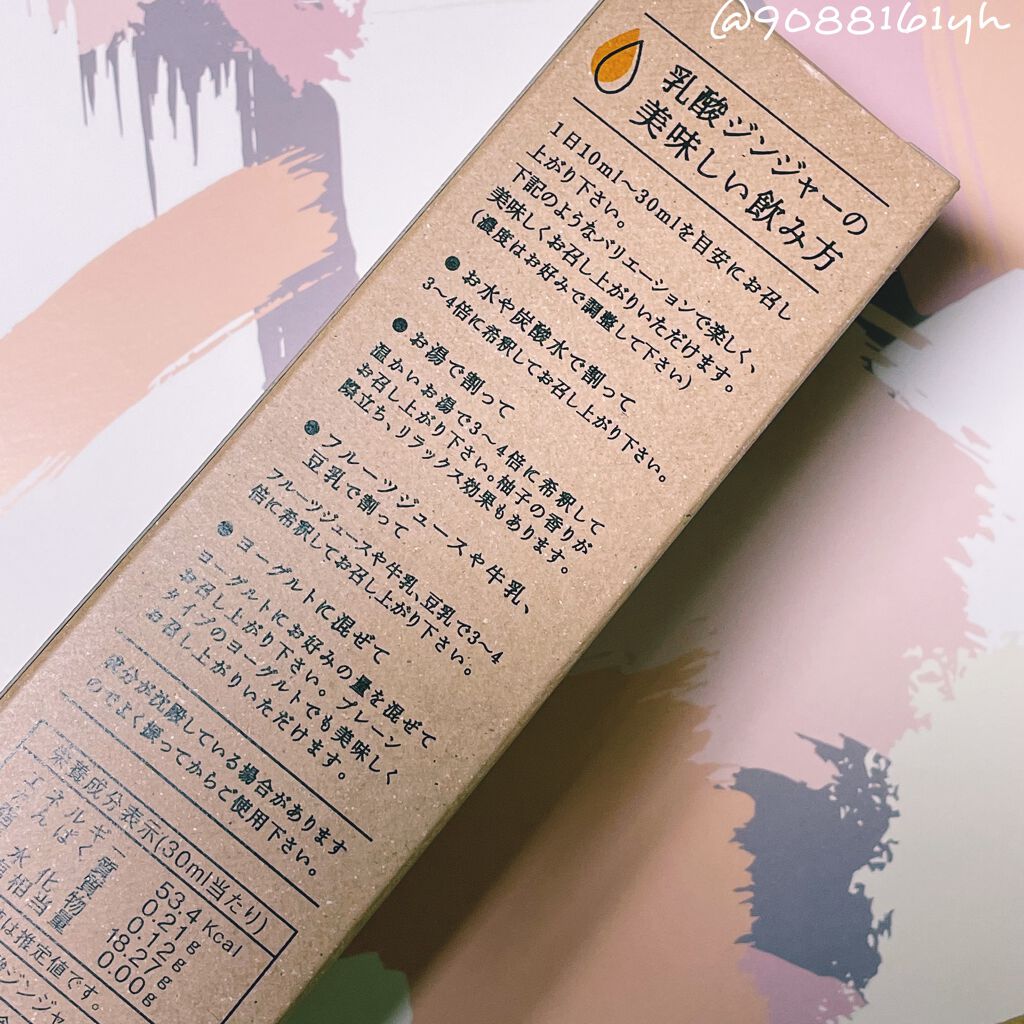 @9088161yh
乳酸ジンジャーの
美味しい飲み方
1日10ml～30mlを目安にお召し
上がり下さい。
下記のようなバリエーションで楽しく、
美味しくお召し上がりいただけます。
(濃度はお好みで調整して下さい)
● お水や炭酸水で割って
3～4倍に希釈してお召し上がり下さい。
● お湯で割って
温かいお湯で3～4倍に希釈して
お召し上がり下さい。柚子の香りが
際立ち、リラックス効果もあります。
● フルーツジュースや牛乳、
豆乳で割って
フルーツジュースや牛乳、豆乳で3～4
倍に希釈してお召し上がり下さい。
● ヨーグルトに混ぜて
ヨーグルトにお好みの量を混ぜて
お召し上がり下さい。プレーン
タイプのヨーグルトでも美味しく
お召し上がりいただけます。
成分が沈殿している場合があります
のでよく振ってからご使用下さい。
栄養成分表示(30ml当たり)
エネルギー 53.4Kcal
たんぱく質 0.21g
脂質 0.12g
水化物 18.27g
相当量 0.00g
は推定値です。
ジンジャー